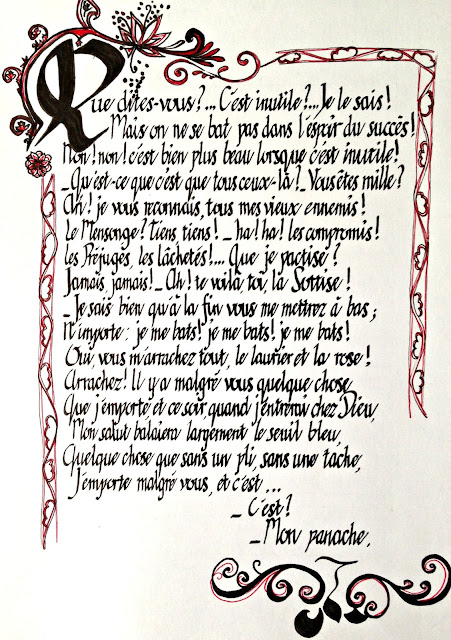 Que dites-vous ?... C'est inutile ?... Je le sais !
Mais on ne se bat pas dans l'espoir du succès !
Non ! non ! c'est bien plus beau lorsque c'est inutile !
_ Qu'est-ce que c'est que tous ceux-là ? _ Vous êtes mille ?
Ah ! je vous reconnais, tous mes vieux ennemis !
Le Mensonge ? Tiens, tiens ! _ ha ! ha ! les compromis !
Les Préjugés, les lâchetés !... Que je pactise ?
Jamais, jamais ! _ Ah ! te voilà toi, la Sottise !
_ Je sais bien qu'à la fin vous me mettrez à bas ;
N'importe : je me bats ! je me bats ! je me bats !
Oui, vous m'arrachez tout, le laurier et la rose !
Arrachez ! Il y a malgré vous quelque chose
Que j'emporte, et ce soir, quand j'entrerai chez Dieu,
Mon salut balaiera largement le seuil bleu,
Quelque chose que sans un pli, sans une tache,
J'emporte malgré vous, et c'est ...
_ C'est ?
_ Mon panache.